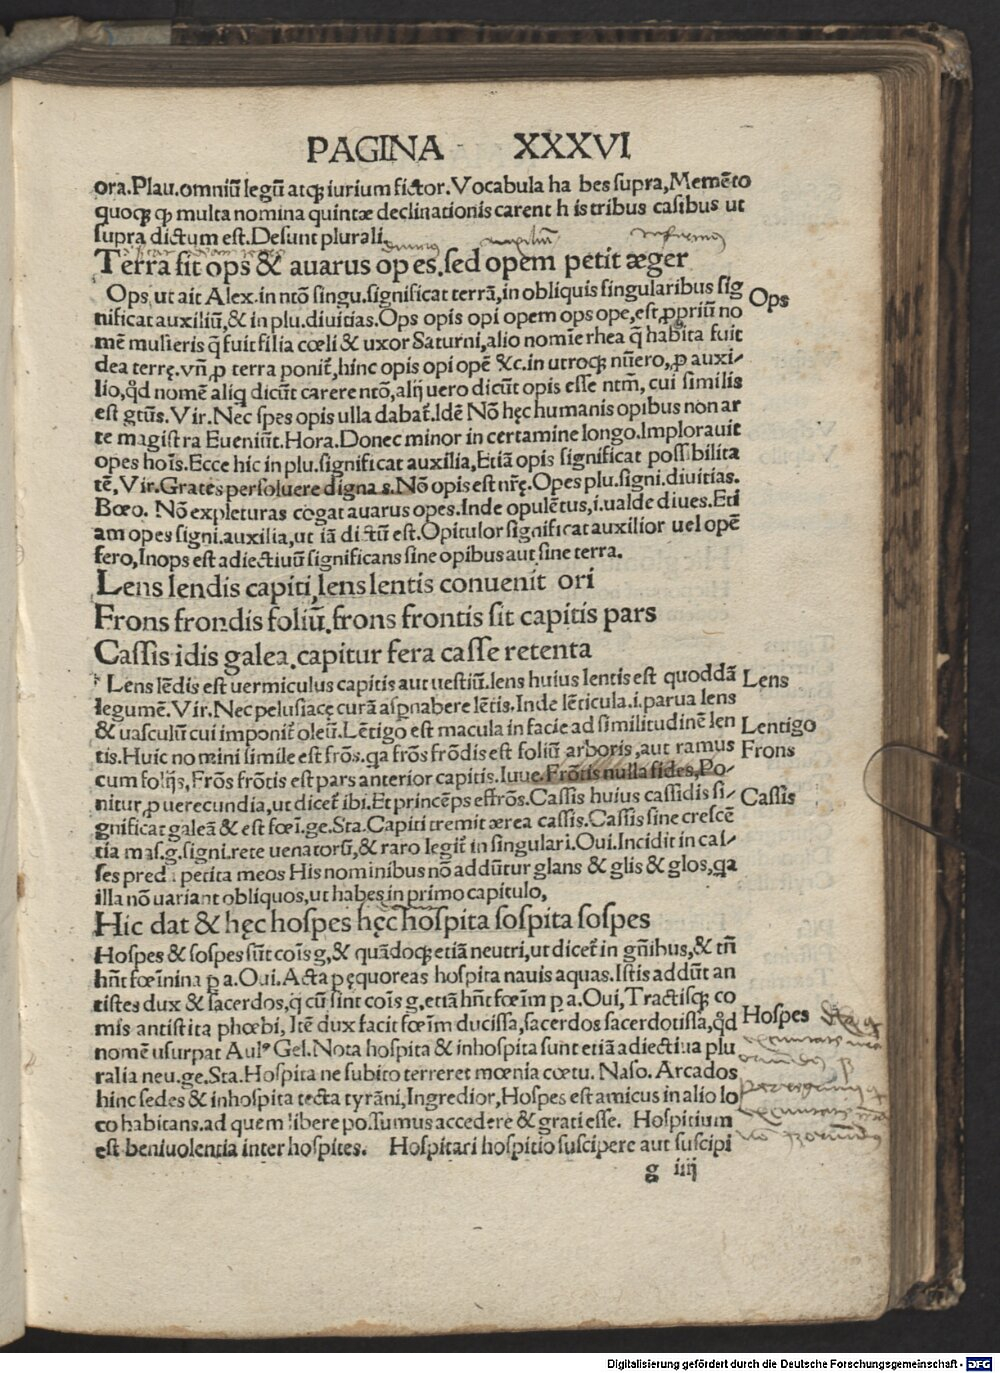 PAGINA XXXVI
ora.Plau.omniū legū atqꝫ iurium fictor.Vocabula ha bes supra,Memēto
quoqꝫ ꝙ multa nomina quintæ declinationis carent h is tribus casibus ut
supra dictum est.Desunt plurali.
Terra sit ops & auarus opes.sed opem petit æger
Ops ut ait Alex.in ntō singu.significat terrā,in obliquis singularibus sig
Ops
nificat auxiliū,& in plu.diuitias.Ops opis opi opem ops ope,est ꝓpriū no
mē mulieris q̄ fuit filia cœli & uxor Saturni,alio nomīe rhea q̄ habita fuit
dea terrę.vn̄ ꝓ terra ponit̄,hinc opis opi opē &c.in utroqꝫ nūero,ꝓ auxi-
lio,qd̄ nomē aliq dicūt carere ntō,alij uero dicūt opis esse ntm̄, cui similis
est gtūs.Vir.Nec spes opis ulla dabat̄.Idē Nō hęc humanis opibus non ar
te magistra Eueniūt.Hora.Donec minor in certamine longo.Implorauit
opes hoīs.Ecce hic in plu.significat auxilia,Etiā opis significat possibilita
tē,Vir.Grates persoluere digna s.Nō opis est nr̄ę.Opes plu.signi.diuitias.
Bœo. Nō expleturas cogat auarus opes.Inde opulētus,i.ualde diues.Eti
am opes signi.auxilia,ut iā dictū est.Opitulor significat auxilior uel opē
fero,Inops est adiectiuū significans sine opibus aut sine terra.
Lens lendis capiti,lens lentis conuenit ori
Frons frondis foliū.frons frontis sit capitis pars
Cassis idis galea.capitur fera casse retenta
Lens lēdis est uermiculus capitis aut uestiū.lens huius lentis est quoddā
Lens
legumē.Vir.Nec pelusiacę curā aspnabere lētis.Inde lēticula.i.parua lens
& uasculū cui imponit̄ oleū.Lētigo est macula in facie ad similitudinē len
Lentigo
tis.Huic nomini simile est frōs.qa frōs frōdis est foliū arboris,aut ramus
Frons
cum folijs,Frōs frōtis est pars anterior capitis.Iuue.Frōtis nulla fides,Po-
nitur,ꝓ uerecundia,ut dicet̄ ibi.Et princēps effrōs.Cassis huius cassidis si-
Cassis
gnificat galeā & est fœi.ge.Sta.Capiti tremit ærea cassis.Cassis sine crescē
tia mas.g.signi.rete uenatorū,& raro legit̄ in singulari.Oui.Incidit in cas-
ses pred petita meos His nominibus nō addūtur glans & glis & glos,qa
illa nō uariant obliquos,ut habes in primo capitulo,
Hic dat & hęc hospes hęc hospita sospita sospes
Hospes & sospes sūt coīs g,& quādoqꝫ etiā neutri,ut dicet̄ in gn̄ibus,& tn̄
hn̄t fœīnina ꝑ a.Oui.Acta ꝑ ęquoreas hospita nauis aquas.Istis addūt an
tistes dux & sacerdos,q cū sint coīs g,etiā hn̄t fœīm ꝑ a.Oui,Tractisqꝫ co
mis antistita phœbi,Itē dux facit fœīm ducissa,sacerdos sacerdotissa,qd̄
Hospes
nomē usurpat Aulꝰ Gel.Nota hospita & inhospita sunt etiā adiectiua plu
ralia neu.ge.Sta.Hospita ne subito terreret mœnia cœtu. Naso. Arcados
hinc sedes & inhospita tecta tyrāni,Ingredior,Hospes est amicus in alio lo
co habitans.ad quem libere possumus accedere & grati esse. Hospitium
est beniuolentia inter hospites. Hospitari hospitio suscipere aut suscipi
g iiij
Digitalisierung gefördert durch die Deutsche Forschungsgemeinschaft - DFG